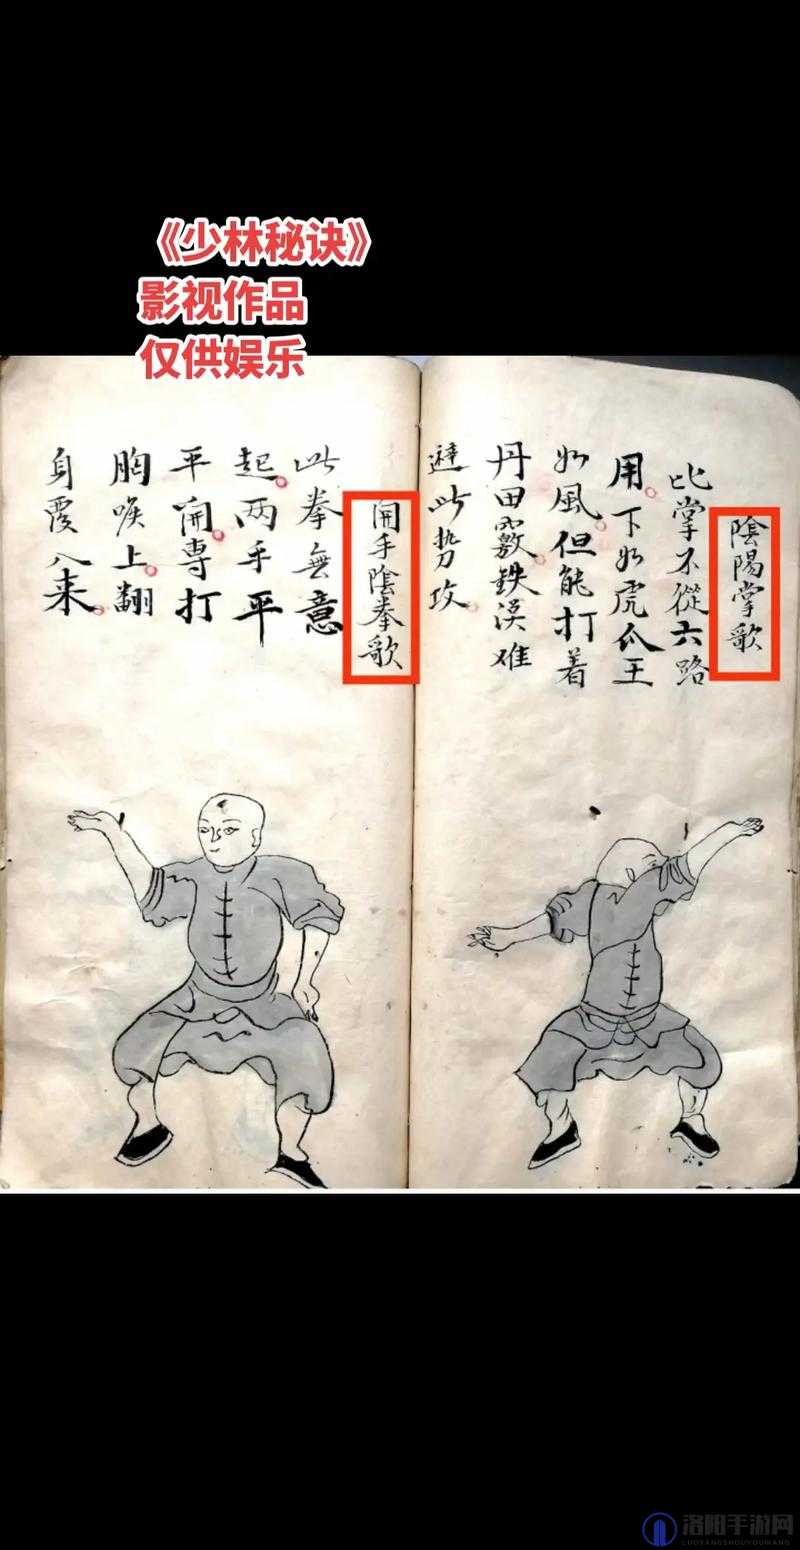 《少林秘诀》
影视作品
仅供娱乐
陰陽掌歌
比掌不從六路
用。下如虎爪王
如風。但能打着
丹田竅。鉄漢难
避此势攻。
開手陰拳歌
此拳無意
起。两手平
平開。專打
胸喉上。翻
身覆入来。
洛阳手游网
LUOYANGSHOUYOUWANG